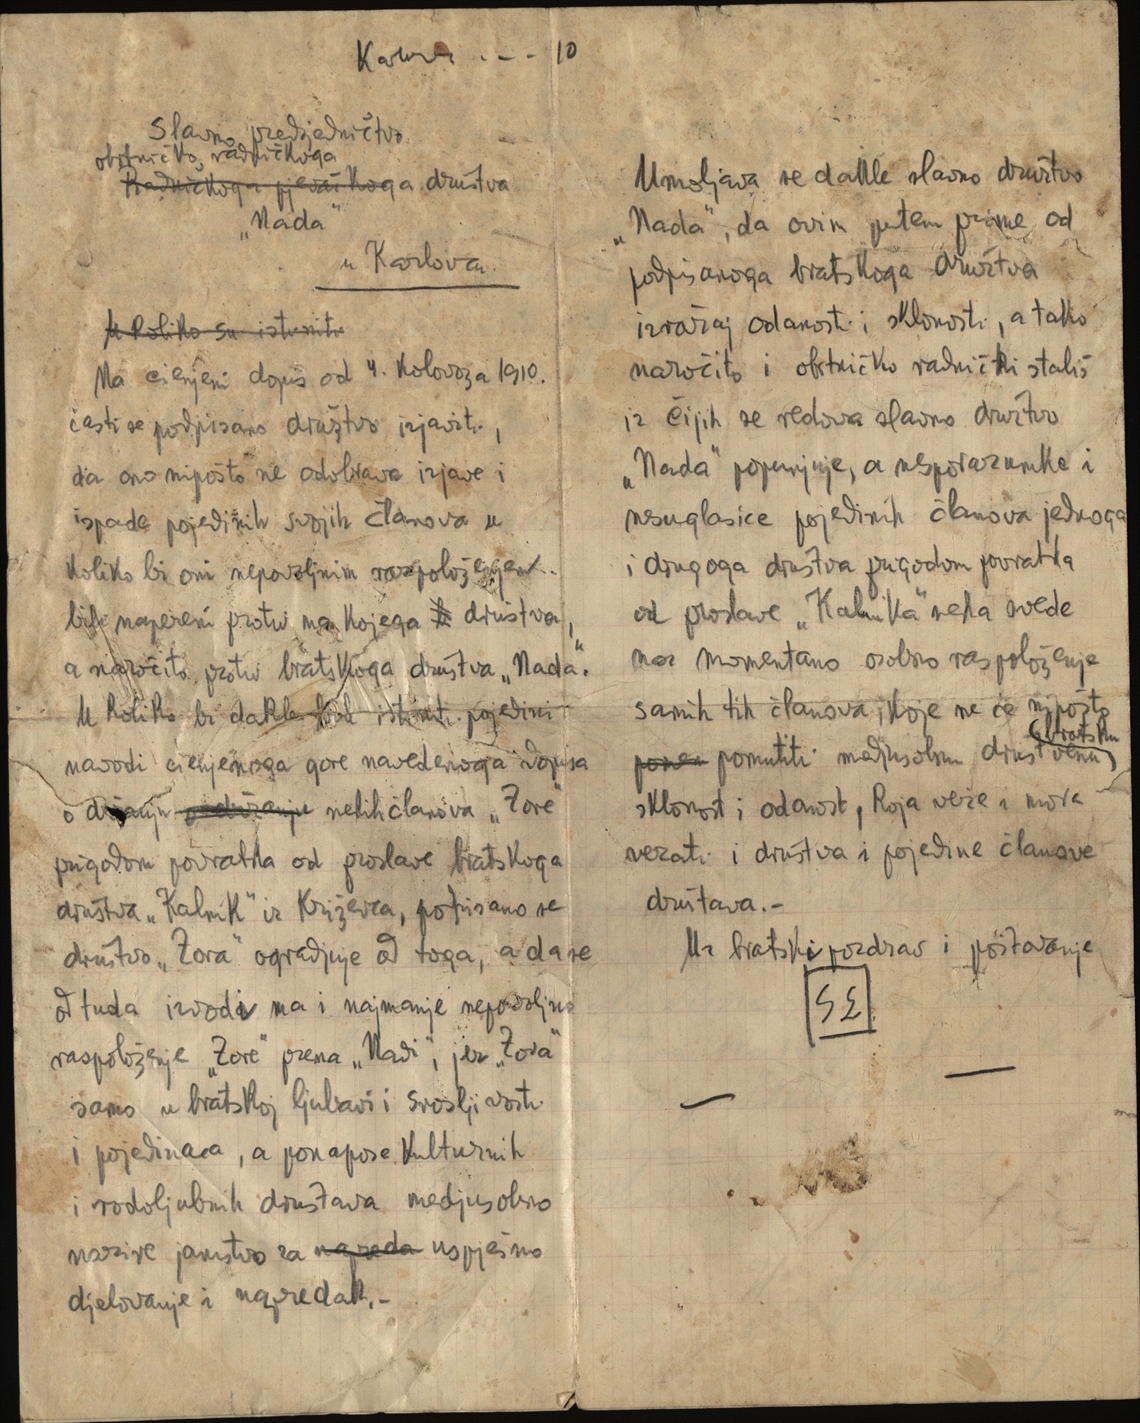 Karlovac . - - 10
Slavno predsjedničtvo
obrtničko, radničkoga
Radničkoga pjevačkoga društva
„Nada"
u Karlovcu.
U koliko su istiniti
Na cienjeni dopis od 4. kolovoza 1910.
časti se podpisano družtvo izjaviti,
da ono nipošto ne odobrava izjave i
ispade pojedinih svojih članova u
koliko bi oni nepovoljnim raspoloženjem
bili napereni protiv ma kojega društva,
a naročito protiv bratskoga društva „Nada".
U koliko bi dakle istiniti pojedini
navodi cienjenoga gore navedenoga dopisa
o držanju o držanju nekih članova „Zore"
prigodom povratka od proslave bratskoga
društva „Kalnik" iz Križevca, potpisano se
društvo „Zora" ogradjuje od toga, a da se
od tuda izvodi ma i najmanje nepovoljno
raspoloženje „Zore" prema „Nadi", jer „Zora"
samo u bratskoj ljubavi i snošljivosti
i pojedinaca, a ponapose kulturnih
i rodoljubnih društava medjusobno
nazire jamstvo za napreda uspješno
djelovanje i napredak.-
Umoljava se dakle slavno družtvo
„Nada", da ovim putem prime od
podpisanoga bratskoga družtva
izražaj odanosti i sklonosti, a tako
naročito i obrtničko radnički stališ
iz čijih se redova slavno družtvo
„Nada" popunjuje, a nesporazumke i
nesuglasice pojedinih članova jednoga
i drugoga društva prigodom povratka
od proslave „Kalnika" neka svede
na momentano osobno raspoloženje
samih tih članova, koje ne će nipošto
bratsku
pomutiti medjusobnu društvenu
sklonost i odanost, koja veže i mora
vezati i društva i pojedine članove
društava.-
Uz bratski pozdrav i poštovanje